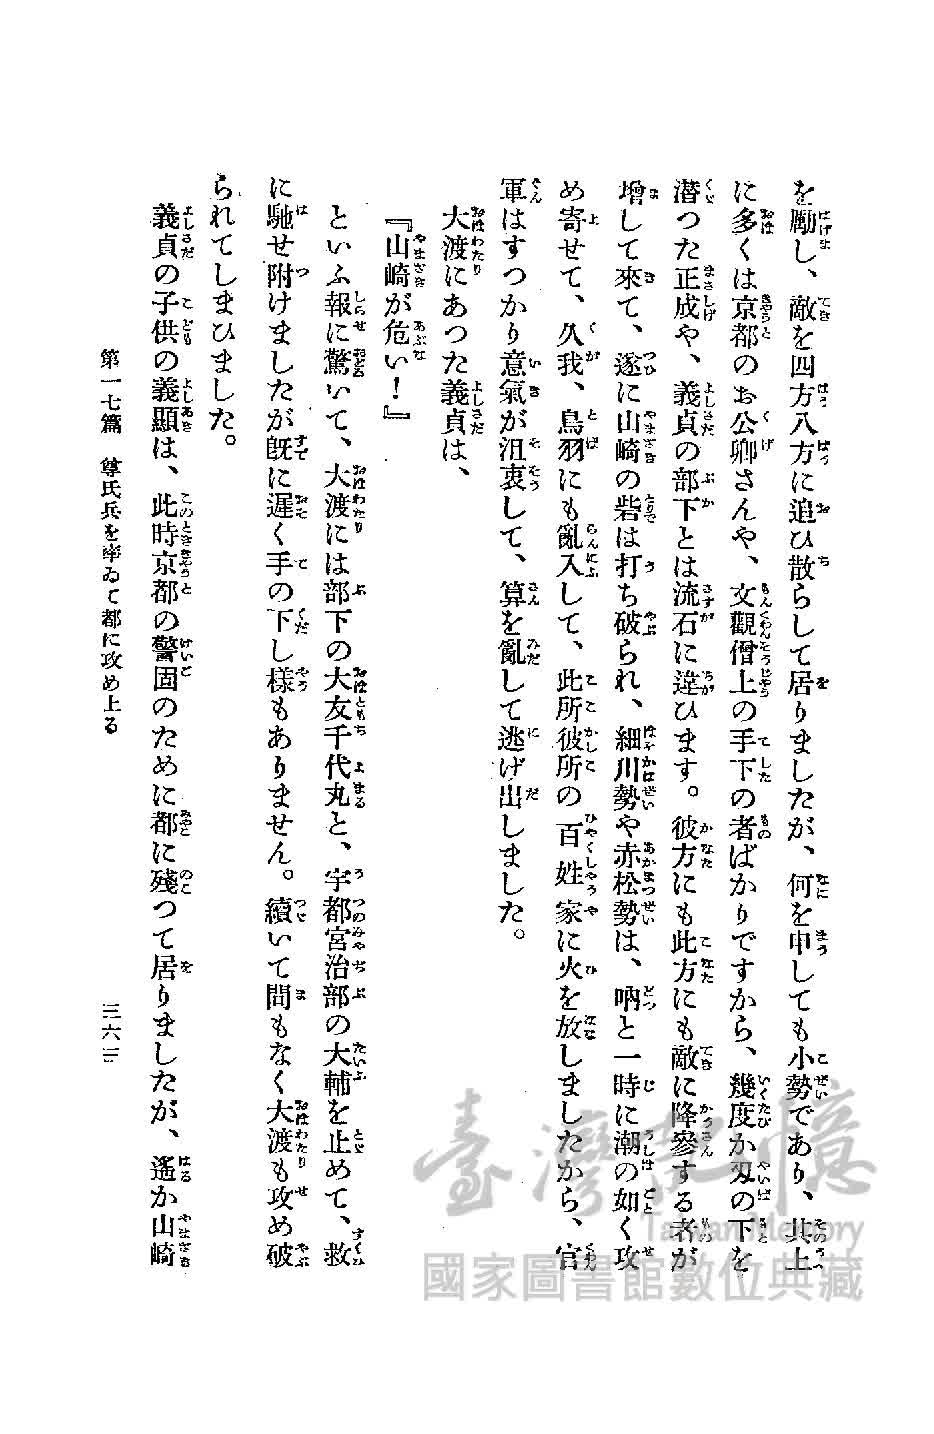 を勵し、敵を四方八方に追ひ散らして居りましたが、何を申しても小勢であり、其上
に多くは京都のお公卿さんや、文觀僧上の手下の者ばかりですから、幾度か刄の下を
潜つた正成や、義貞の部下とは流石に違ひます。彼方にも此方にも敵に降參する者が
增して來て、遂に山崎の砦は打ち破られ、細川勢や赤松勢は、吶と一時に潮の如く攻
め寄せて、久我、鳥羽にも亂入して、此所彼所の百姓家に火を放しましたから、官
軍はすつかり意氣が沮衷して、算を亂して逃げ出しました。
大渡にあつた義貞は、
『山崎が危い！』
といふ報に驚いて、大渡には部下の大友千代丸と、宇都宮治部の大輔を止めて、救
に馳せ附けましたが旣に遲く手の下し樣もありません。續いて間もなく大渡も攻め破
られてしまひました。
義貞の子供の義顯は、此時京都の警固のために都に殘つて居りましたが、遙か山崎
第一七篇　尊氏兵を率ゐて都に攻め上る
三六三
臺灣記憶
Taiwan Memory
國家圖書館數位典藏